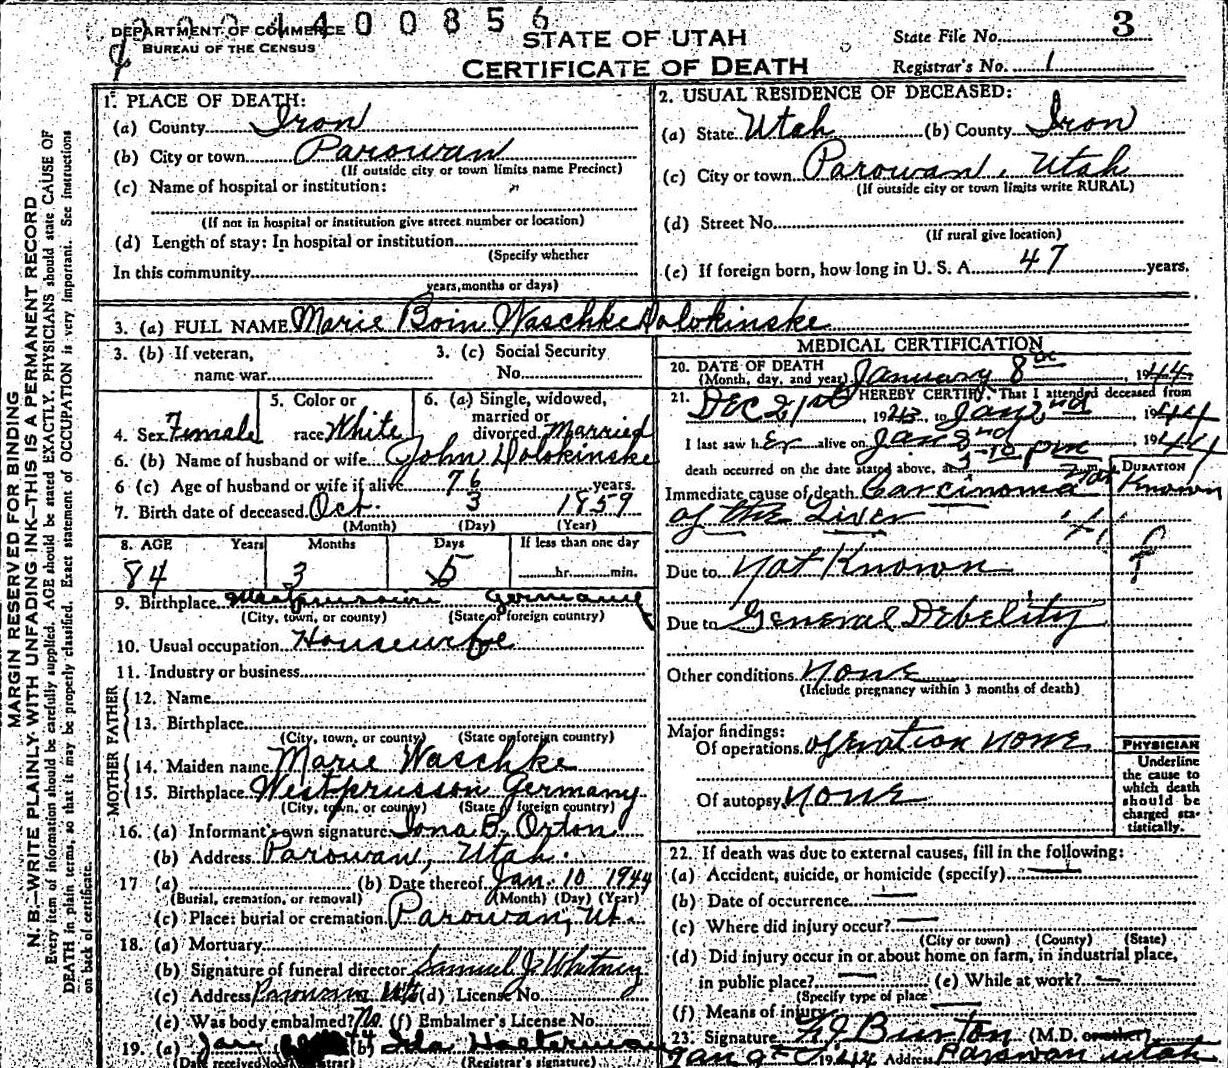 DEPARTMENT OF COMMERCE
BUREAU OF THE CENSUS
400856
STATE OF UTAH
CERTIFICATE OF DEATH
State File No. 3
Registrar's No. 1
MARGIN RESERVED FOR BINDING
N. B.—WRITE PLAINLY WITH UNFADING INK—THIS IS A PERMANENT RECORD
Every item of information should be carefully supplied. AGE should be stated EXACTLY. PHYSICIANS should state CAUSE OF
DEATH in plain terms, so that it may be properly classified. Exact statement of OCCUPATION is very important. See instructions
on back of certificate.
1. PLACE OF DEATH:
(a) County Iron
(b) City or town Parowan
(If outside city or town limits name Precinct)
(c) Name of hospital or institution:
(If not in hospital or institution give street number or location)
(d) Length of stay: In hospital or institution
(Specify whether
In this community
years, months or days)
2. USUAL RESIDENCE OF DECEASED:
(a) State Utah (b) County Iron
(c) City or town Parowan, Utah
(If outside city or town limits write RURAL)
(d) Street No.
(If rural give location)
(e) If foreign born, how long in U. S. A. 47 years.
3. (a) FULL NAME Marie Boin Waschke Dolokinske
3. (b) If veteran, 3. (c) Social Security
name war No.
4. Sex Female
5. Color or race White
6. (a) Single, widowed, married or divorced Married
6. (b) Name of husband or wife John Dolokinske
6 (c) Age of husband or wife if alive 76 years.
7. Birth date of deceased Oct. 3 1859
(Month) (Day) (Year)
8. AGE Years Months Days If less than one day
84 3 5 hr. min.
9. Birthplace Germany
(City, town, or county) (State or foreign country)
10. Usual occupation Housewife
11. Industry or business
FATHER
12. Name
13. Birthplace
(City, town, or county) (State or foreign country)
MOTHER
14. Maiden name Marie Waschke
15. Birthplace Westprusson Germany
(City, town, or county) (State or foreign country)
16. (a) Informant's own signature Iona B. Orton
(b) Address Parowan, Utah.
17 (a) (b) Date thereof Jan. 10 1944
(Burial, cremation, or removal) (Month) (Day) (Year)
(c) Place: burial or cremation Parowan, Ut.
18. (a) Mortuary
(b) Signature of funeral director Samuel J. Whitney
(c) Address Parowan Ut (d) License No.
(e) Was body embalmed? No (f) Embalmer's License No.
19. (a) Jan (b) Ida Halterman
(Date received local registrar) (Registrar's signature)
MEDICAL CERTIFICATION
20. DATE OF DEATH
(Month, day, and year) January 8, 1944
21. I HEREBY CERTIFY, That I attended deceased from
Dec 21st 1943, to Jan 2nd, 1944
I last saw her alive on Jan 2nd, 1944
death occurred on the date stated above, at 5-10 pm
DURATION
Not Known
Immediate cause of death Carcinoma
of the Liver
Due to Not Known ?
Due to General Debelity
Other conditions None
(Include pregnancy within 3 months of death)
Major findings:
Of operations operation none
Of autopsy None
PHYSICIAN
Underline
the cause to
which death
should be
charged sta-
tistically.
22. If death was due to external causes, fill in the following:
(a) Accident, suicide, or homicide (specify) —
(b) Date of occurrence —
(c) Where did injury occur? —
(City or town) (County) (State)
(d) Did injury occur in or about home on farm, in industrial place,
in public place? — (e) While at work? —
(Specify type of place
(f) Means of injury —
23. Signature Burton (M.D. or other)
Jan 9th 1944 Address Parowan Utah